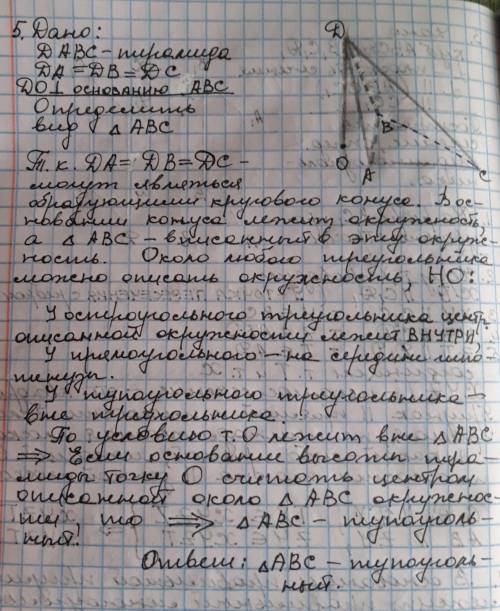 5. Дано:
DABC - пирамида
DA = DB = DC
DO ⊥ основанию ABC
Определить
вид △ ABC
D
B
O
A
C
Т.к. DA = DB = DC -
могут являться
образующими кругового конуса. В ос-
новании конуса лежит окружность,
а △ ABC - вписанный в эту окруж-
ность. Около любого треугольника
можно описать окружность, НО:
У остроугольного треугольника центр
описанной окружности лежит ВНУТРИ,
У прямоугольного - на середине гипо-
тенузы.
У тупоугольного треугольника -
вне треугольника.
По условию т. O лежит вне △ ABC
⇒ Если основание высоты пира-
миды точку O считать центром
описанной около △ ABC окружнос-
ти, то ⇒ △ ABC - тупоуголь-
ный!
Ответ: △ABC - тупоуголь-
ный.